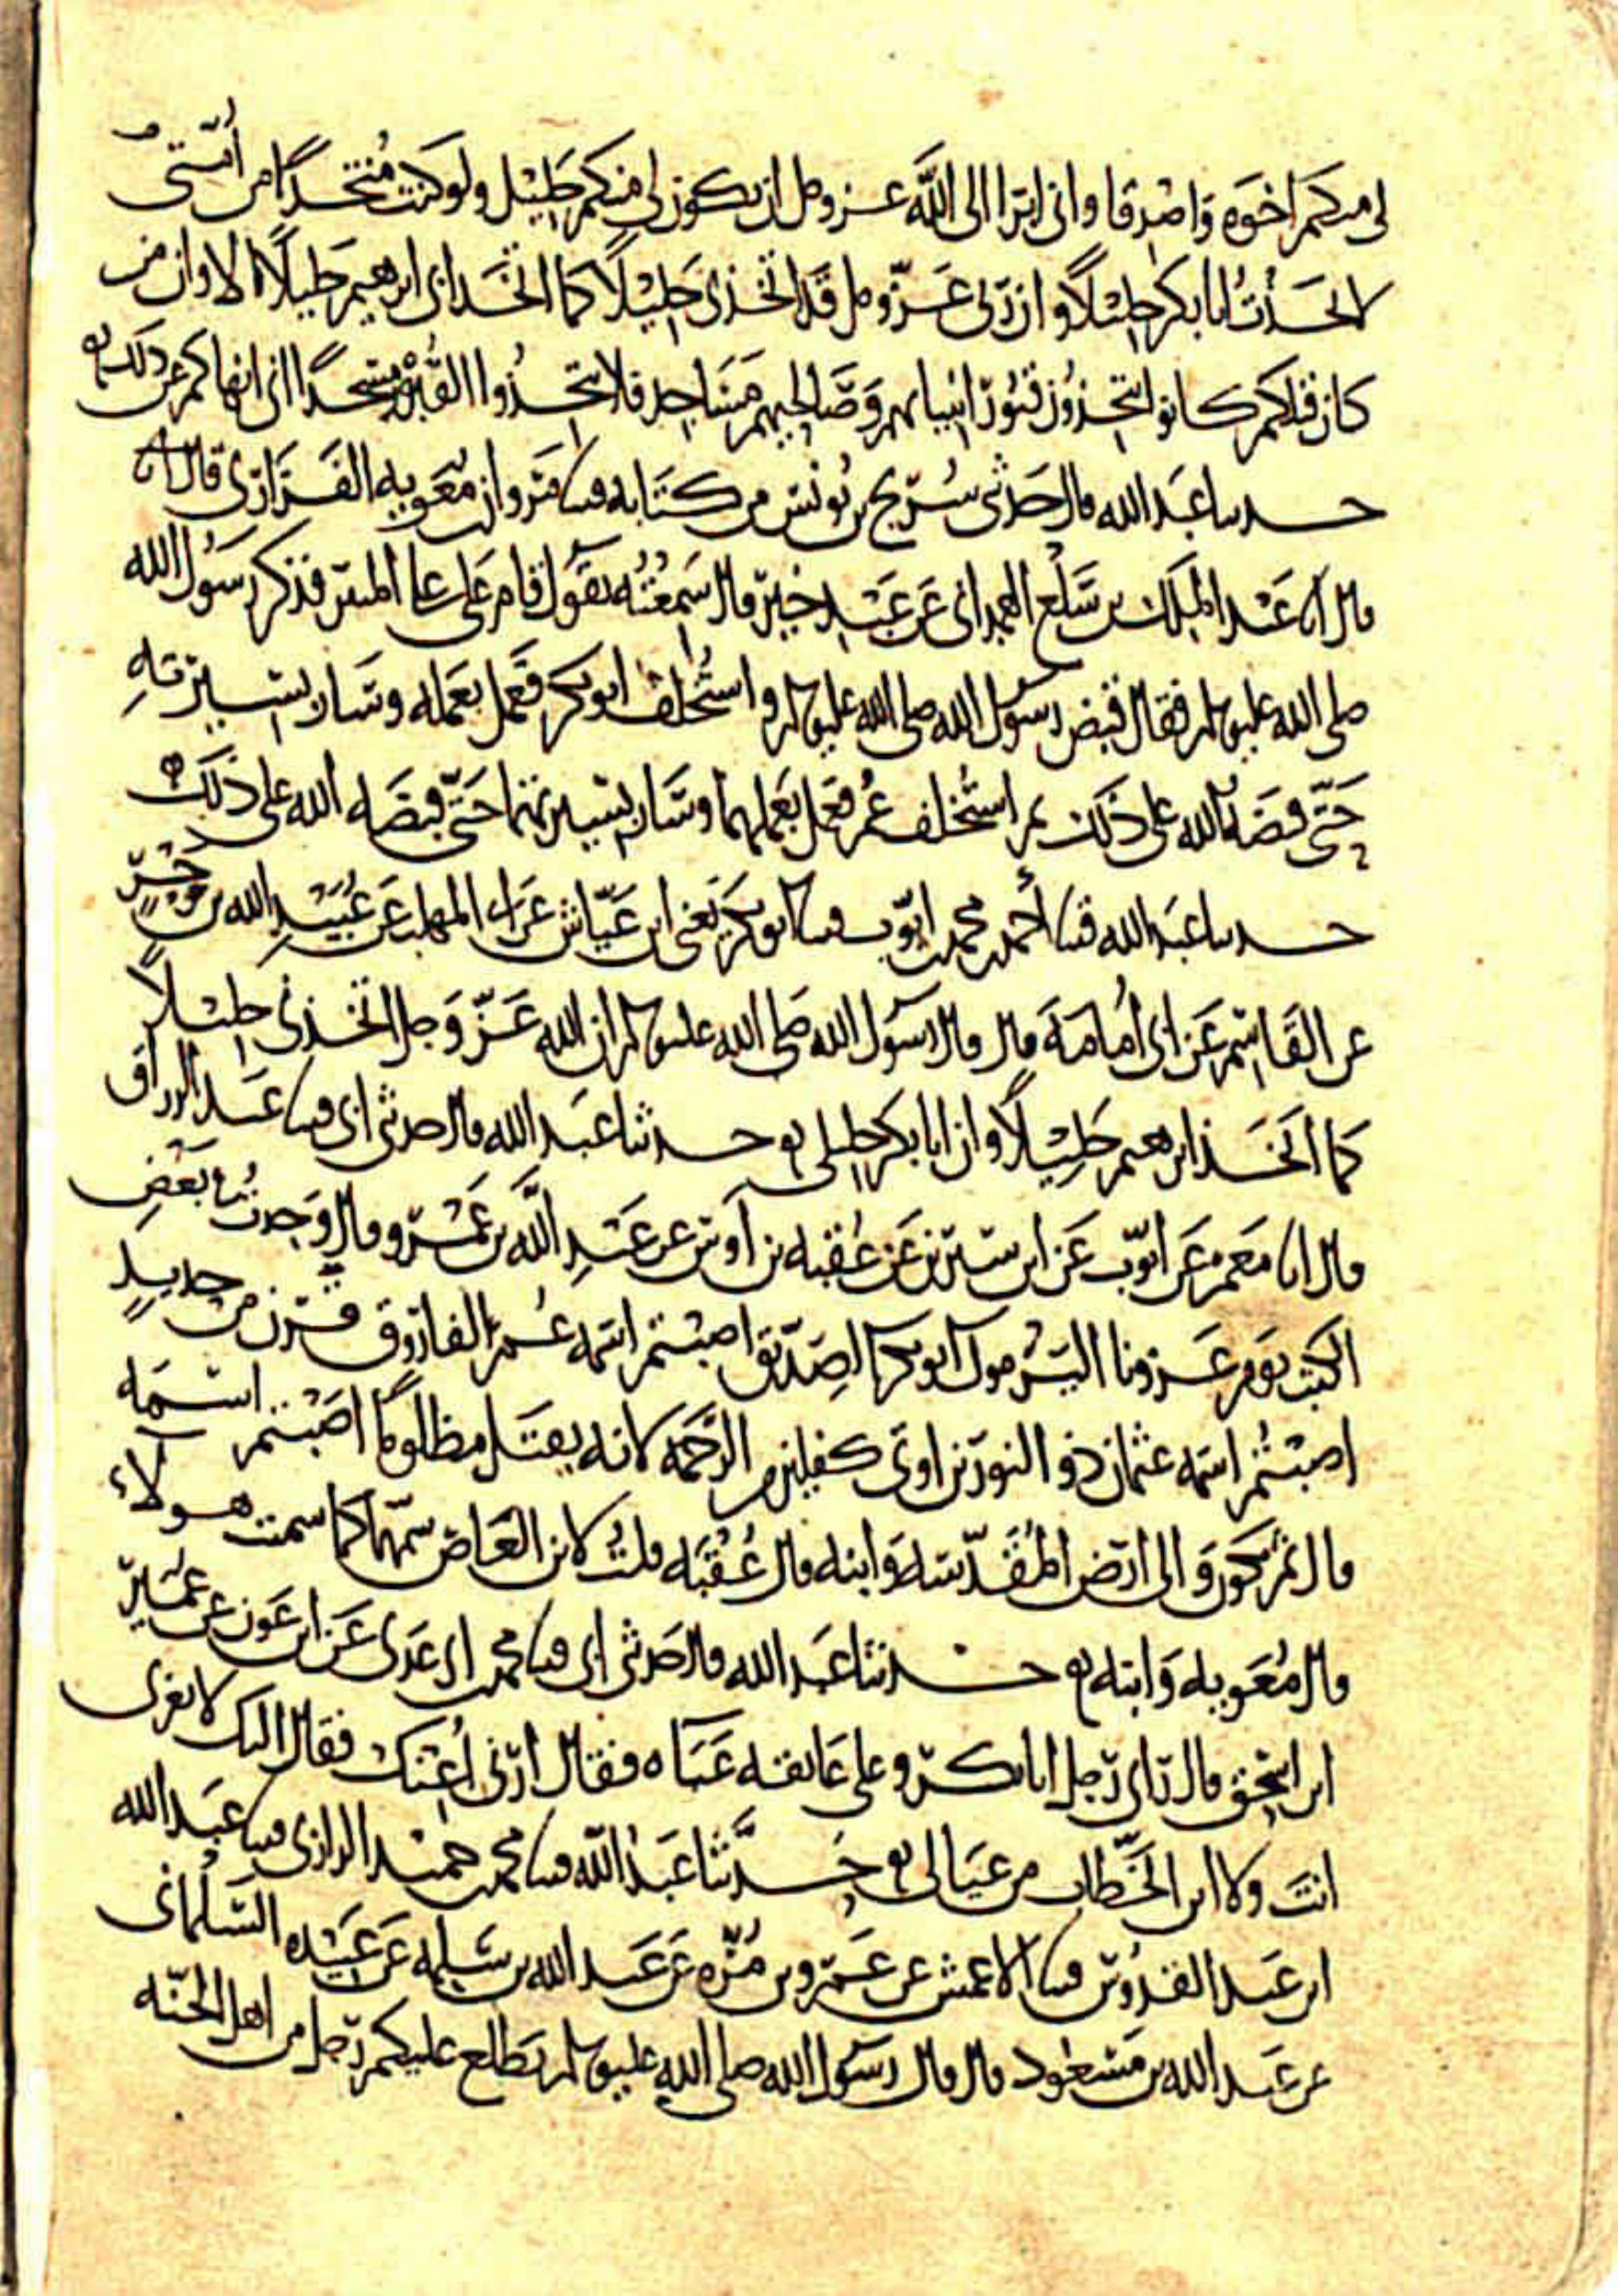 لى منكم اخوه واصدقا وانى ابرا الى الله عز وجل ان يكون لى منكم خليل ولو كنت متخدا من امتى
لاتخذت ابا بكر خليلا وان ربى عز وجل قد اتخذنى خليلا كما اتخذ ابى ابرهيم خليلا الا وان من
كان قبلكم كانوا يتخذون قبور انبيايهم وصالحيهم مساجد فلا تتخذوا القبر مسجدا انى انهاكم عن ذلك
حدثنا عبد الله قال حدثنى سريج بن يونس من كتابه قثنا مروان بن معويه الفزارى قال انا
قال انا عبد الملك بن سلع الهمدانى عن عبد خير قال سمعته يقول قام على على المنبر فذكر رسول الله
صلى الله عليه وسلم فقال قبض رسول الله صلى الله عليه وسلم واستخلف ابو بكر فعمل بعمله وسار بسيرته
حتى قبضه الله على ذلك ثم استخلف عمر فعمل بعملهما وسار بسيرتهما حتى قبضه الله على ذلك
حدثنا عبد الله قثنا احمد بن محمد بن ايوب قثنا ابو بكر يعنى ابن عياش عن ابى المهلب عن عبيد الله بن زحر
عن القاسم عن ابى امامة قال قال رسول الله صلى الله عليه وسلم ان الله عز وجل اتخذنى خليلا
كما اتخذ ابرهيم خليلا وان ابا بكر خليلى حدثنا عبد الله قال حدثنى ابى قثنا عبد الرزاق
قال انا معمر عن ايوب عن ابن سيرين عن عقبه بن اوس عن عبد الله بن عمرو قال وجدت فى بعض
الكتب يوم غزونا اليرموك ابو بكر الصديق اصبتم اسمه عمر الفاروق قرن من حديد
اصبتم اسمه عثمان ذو النورين اوتى كفلين من الرحمه لانه يقتل مظلوما اصبتم اسمه
قال ثم يكون والى ارض المقدسه وابنه قال عقبه قلت لابن العاص سمهما كما سميت هولاء
قال معويه وابنه حدثنا عبد الله قال حدثنى ابى قثنا محمد بن ابى عدى عن ابن عون عن عمير
ابن اسحق قال راى رجل ابا بكر وعلى عاتقه عباه فقال ارنى اعنك فقال اليك لا تغرنى
انت ولا ابن الخطاب من عيالى حدثنا عبد الله قثنا محمد بن حميد الرازى قثنا عبد الله
ابن عبد القدوس قثنا الاعمش عن عمرو بن مره عن عبد الله بن سلمه عن عبيده السلمانى
عن عبد الله بن مسعود قال قال رسول الله صلى الله عليه وسلم يطلع عليكم رجل من اهل الجنه